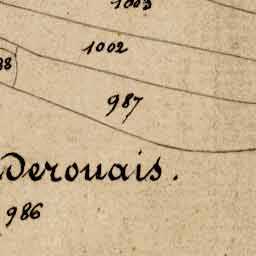 1003
1002
987
Derouais.
986